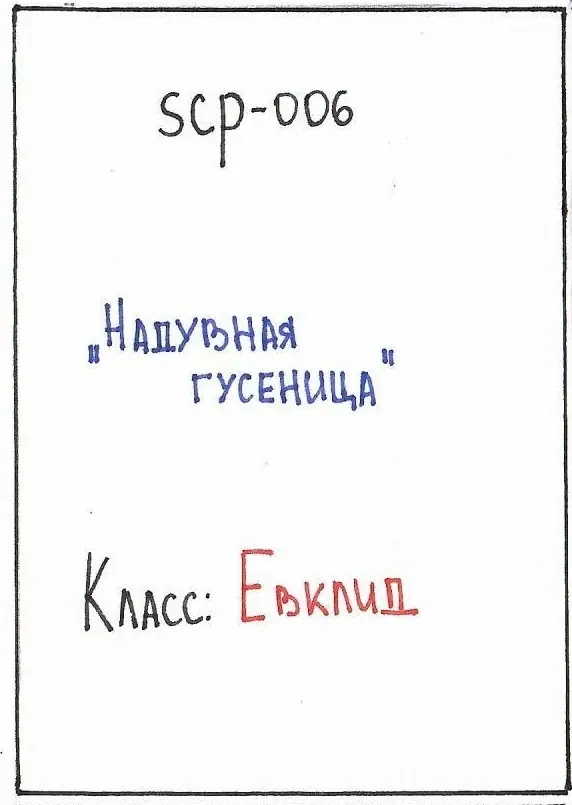 SCP-006
„Надувная
гусеница"
Класс: Евклид